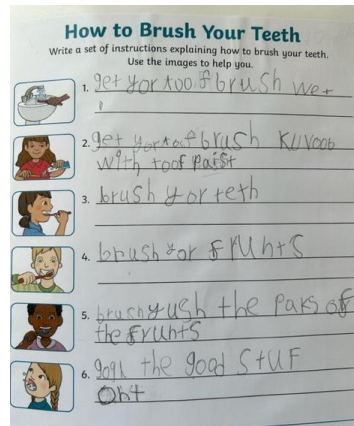 How to Brush Your Teeth
Write a set of instructions explaining how to brush your teeth.
Use the images to help you.
1. get yor toofbrush wet
2. get yor toofbrush kuvoob
with toof paist
3. brush yor teth
4. brush yor frunts
5. brush the paks of
the frunts
6. the good stuf